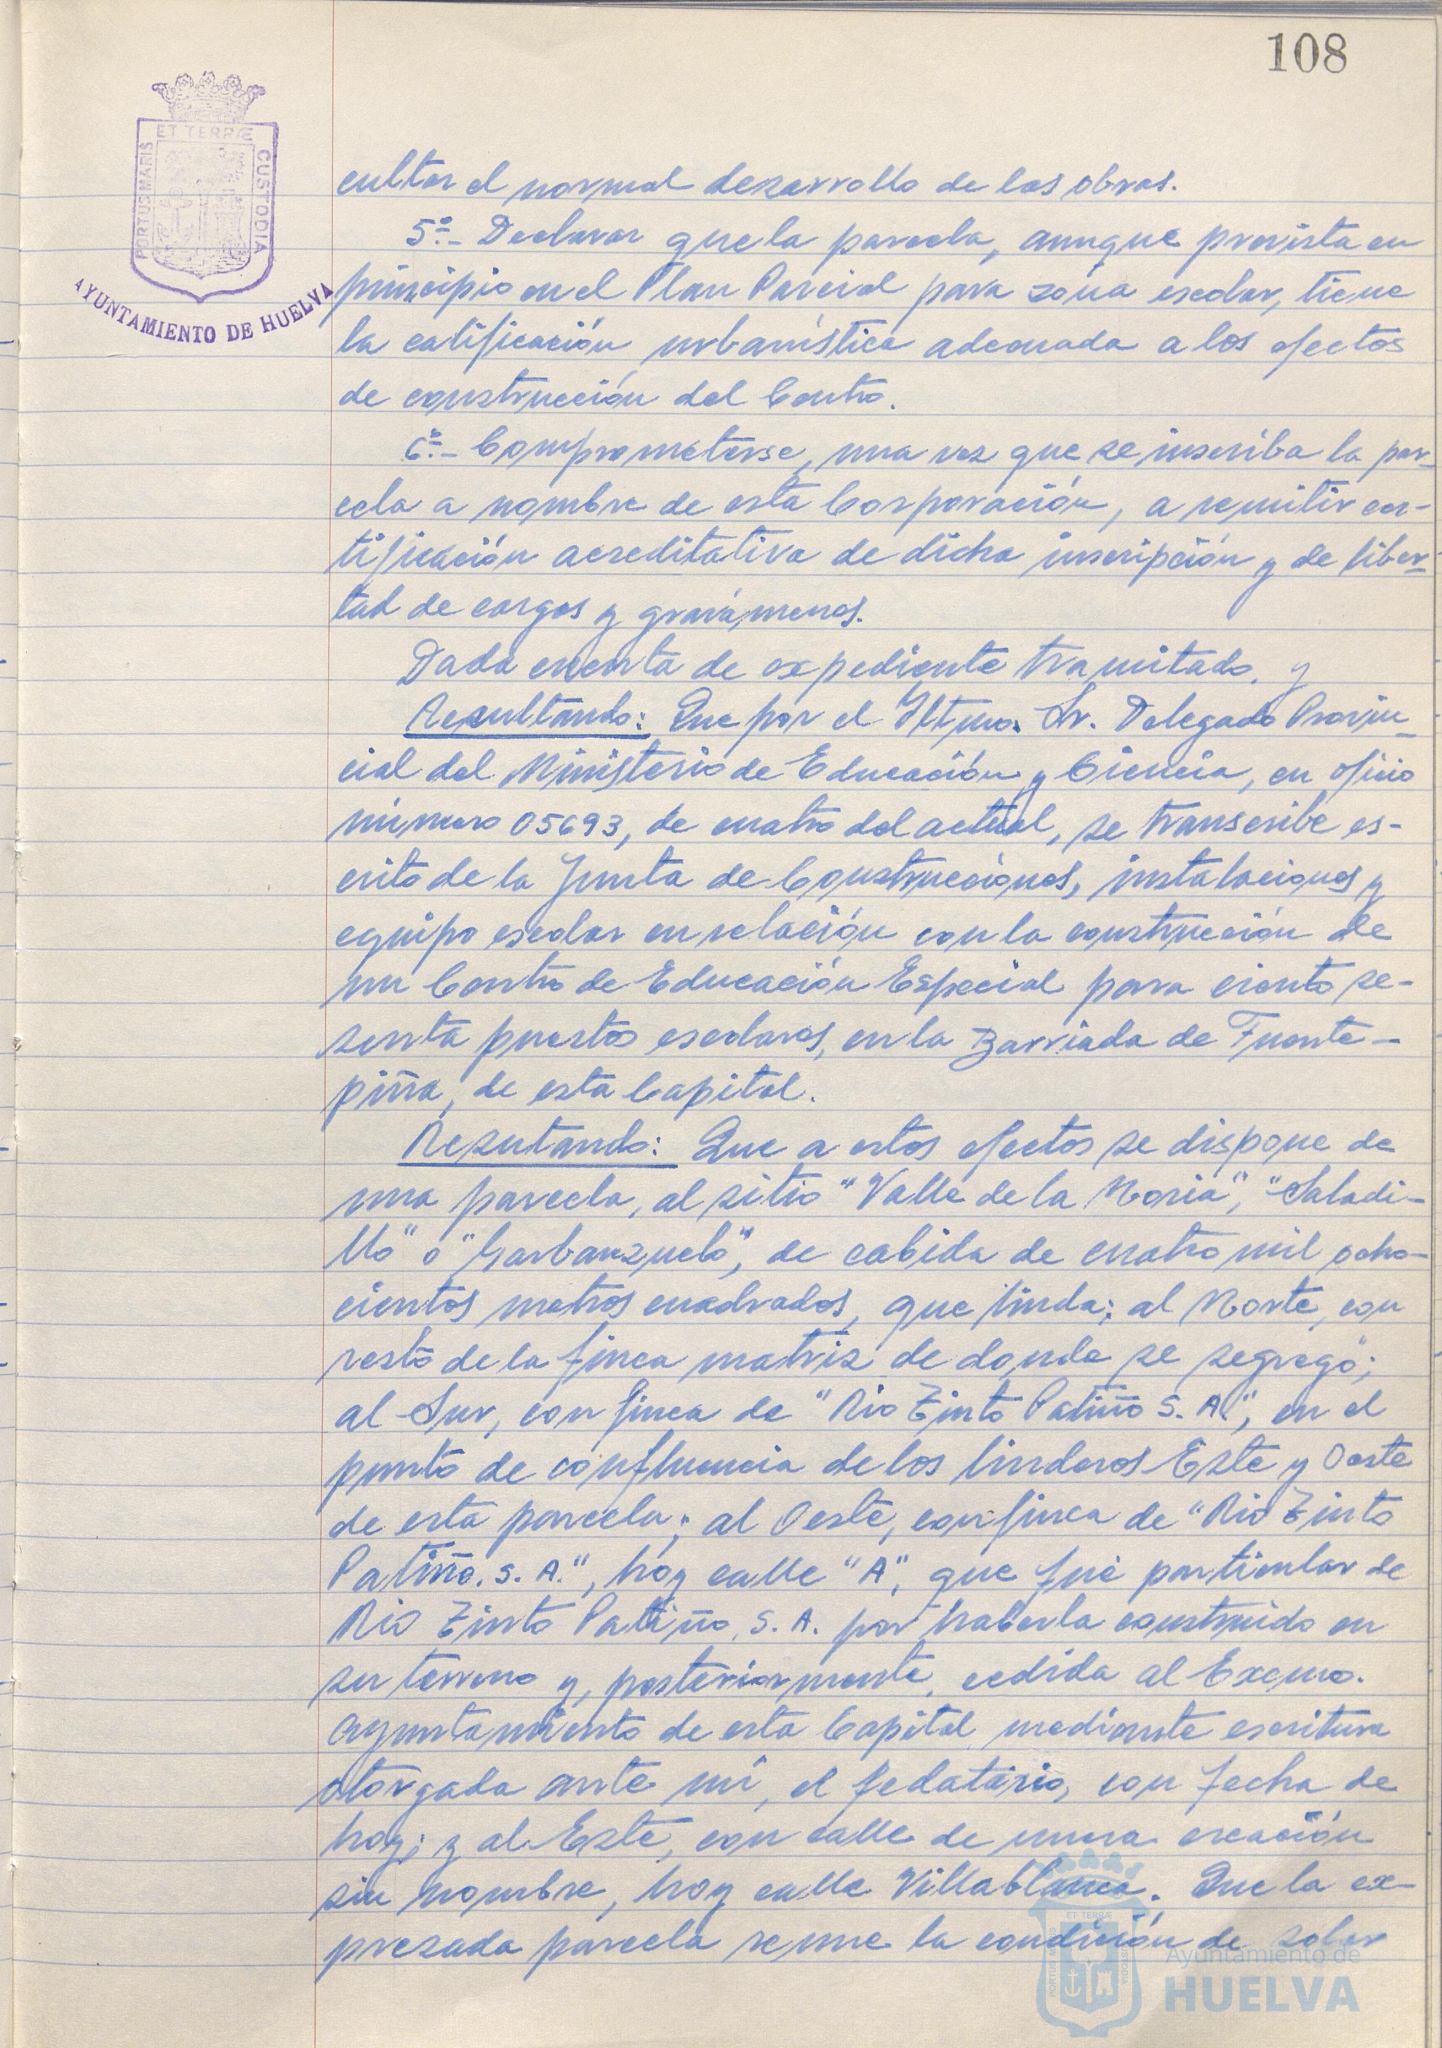 108
ET TERRÆ
PORTUS MARIS
CUSTODIA
AYUNTAMIENTO DE HUELVA
cultar el normal desarrollo de las obras.
5º.- Declarar que la parcela, aunque prevista en
principio en el Plan Parcial para zona escolar, tiene
la calificación urbanística adecuada a los efectos
de construcción del Centro.
6º.- Comprometerse, una vez que se inscriba la par-
cela a nombre de esta Corporación, a remitir cer-
tificación acreditativa de dicha inscripción y de liber-
tad de cargas y gravámenes.
Dada cuenta de expediente tramitado, y
Resultando: Que por el Iltmo. Sr. Delegado Provin-
cial del Ministerio de Educación y Ciencia, en oficio
número 05693, de cuatro del actual, se transcribe es-
crito de la Junta de Construcciones, instalaciones y
equipo escolar en relación con la construcción de
un Centro de Educación Especial para ciento se-
senta puestos escolares, en la Barriada de Fuente-
piña, de esta Capital.
Resutando: Que a estos efectos se dispone de
una parcela, al sitio "Valle de la Noria", "Saladi-
llo" o "Garbanzuelo", de cabida de cuatro mil ocho-
cientos metros cuadrados, que linda; al Norte, con
resto de la finca matriz de donde se segregó;
al Sur, con finca de "Rio Tinto Patiño S. A.", en el
punto de confluencia de los linderos Este y Oeste
de esta parcela; al Oeste, con finca de "Rio Tinto
Patiño. S. A.", hoy calle "A", que fué particular de
Rio Tinto Patiño, S. A. por haberla construido en
su terreno y, posteriormente, cedida al Excmo.
Ayuntamiento de esta Capital mediante escritura
otorgada ante mí, el fedatario, con fecha de
hoy; y al Este, con calle de nueva creación
sin nombre, hoy calle Villablanca. Que la ex-
presada parcela reune la condición de solar
ET TERRÆ
PORTUS MARIS
CUSTODIA
Ayuntamiento de
HUELVA